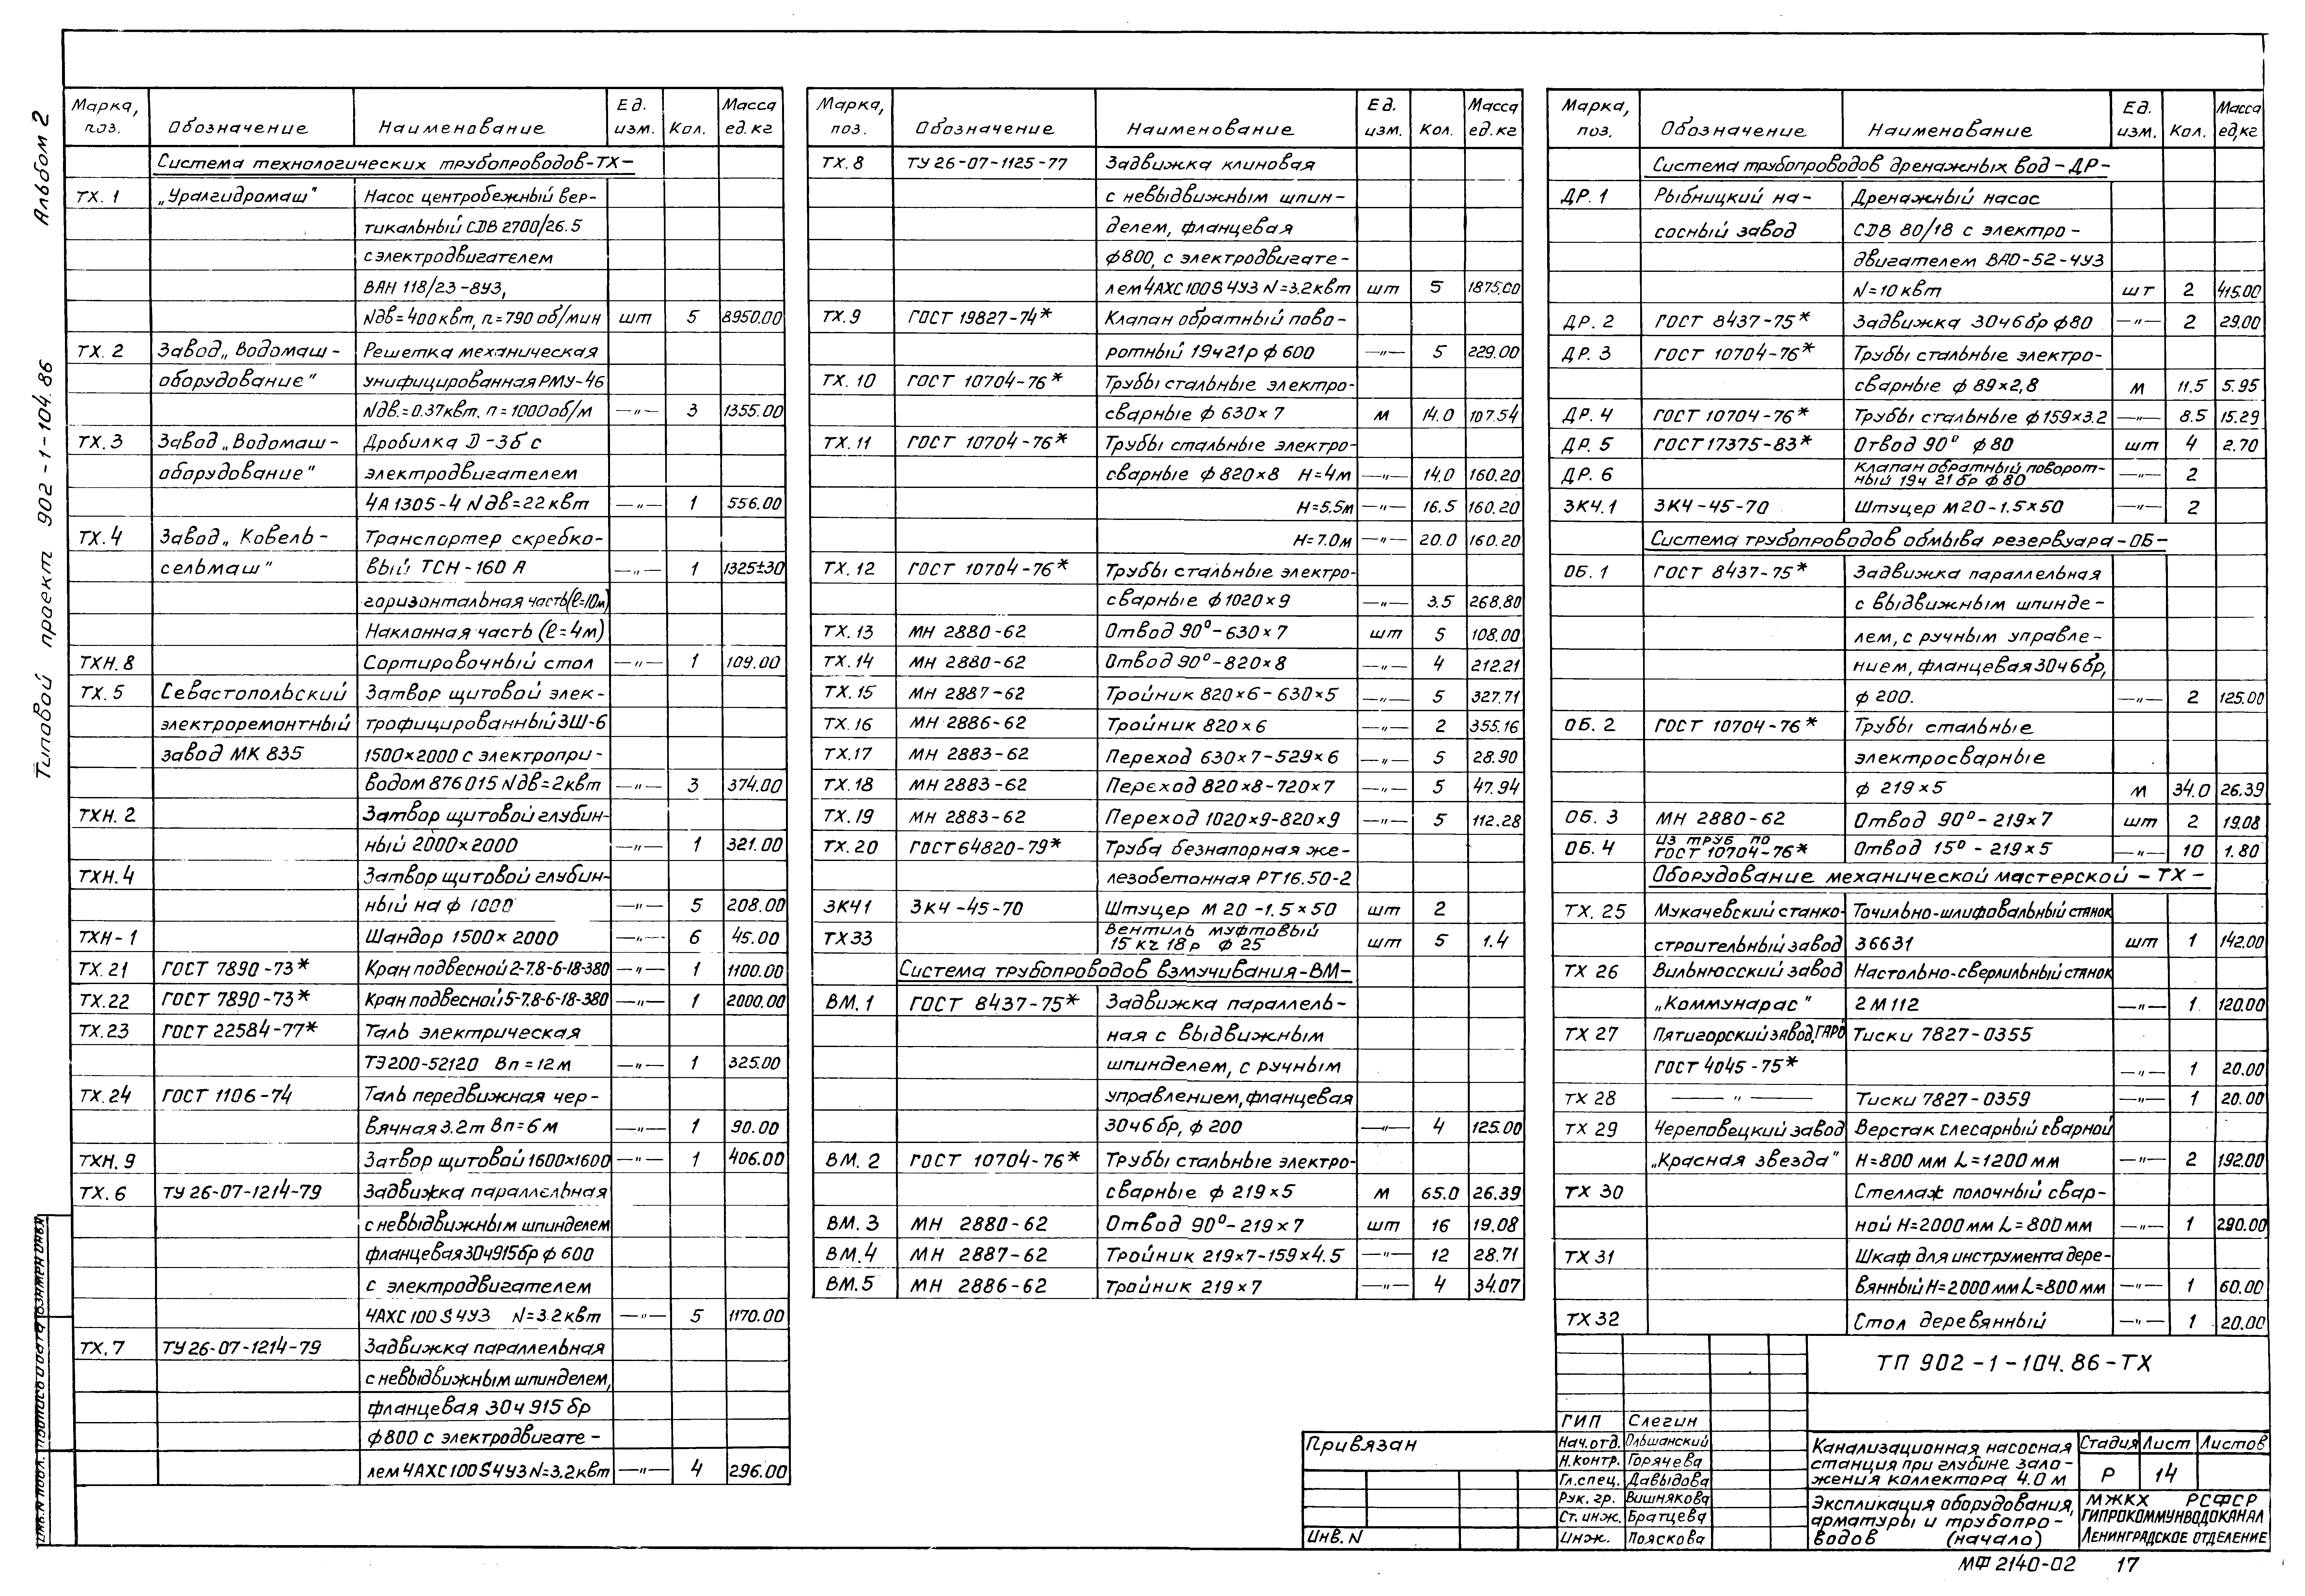 Альбом 2
Типовой проект 902-1-104.86
Марка, поз. Обозначение Наименование Ед. изм. Кол. Масса ед. кг
Система технологических трубопроводов-ТХ-
ТХ. 1 „Уралгидромаш" Насос центробежный вер-
тикальный СДВ 2700/26.5
с электродвигателем
ВАН 118/23-8У3,
Nдв=400квт, n=790 об/мин шт 5 8950.00
ТХ. 2 Завод „Водомаш- Решетка механическая
оборудование" унифицированная РМУ-4б
Nдв.=0.37квт. n=1000об/м —"— 3 1355.00
ТХ. 3 Завод „Водомаш- Дробилка Д-3б с
оборудование" электродвигателем
4А1305-4 Nдв=22квт —"— 1 556.00
ТХ. 4 Завод „Ковель- Транспортер скребко-
сельмаш" вый ТСН-160 А —"— 1 1325±30
горизонтальная часть(ℓ=10м)
Наклонная часть (ℓ=4м)
ТХН. 8 Сортировочный стол —"— 1 109.00
ТХ. 5 Севастопольский Затвор щитовой элек-
электроремонтный трофицированный ЗШ-6
завод МК 835 1500×2000 с электропри-
водом 876015 Nдв=2квт —"— 3 374.00
ТХН. 2 Затвор щитовой глубин-
ный 2000×2000 —"— 1 321.00
ТХН. 4 Затвор щитовой глубин-
ный на ф 1000 —"— 5 208.00
ТХН-1 Шандор 1500×2000 —"— 6 45.00
ТХ. 21 ГОСТ 7890-73* Кран подвесной 2-7.8-6-18-380 —"— 1 1100.00
ТХ. 22 ГОСТ 7890-73* Кран подвесной 5-7.8-6-18-380 —"— 1 2000.00
ТХ. 23 ГОСТ 22584-77* Таль электрическая
ТЭ200-52120 Вп=12м —"— 1 325.00
ТХ. 24 ГОСТ 1106-74 Таль передвижная чер-
вячная 3.2т Вп=6м —"— 1 90.00
ТХН. 9 Затвор щитовой 1600×1600 —"— 1 406.00
ТХ. 6 ТУ 26-07-1214-79 Задвижка параллельная
с невыдвижным шпинделем
фланцевая 30ч915бр ф 600
с электродвигателем
4АХС100S4У3 N=3.2квт —"— 5 1170.00
ТХ. 7 ТУ 26-07-1214-79 Задвижка параллельная
с невыдвижным шпинделем,
фланцевая 30ч 915 бр
ф800 с электродвигате-
лем 4АХС100S4У3 N=3.2квт —"— 4 296.00
Марка, поз. Обозначение Наименование Ед. изм. Кол. Масса ед. кг
ТХ. 8 ТУ 26-07-1125-77 Задвижка клиновая
с невыдвижным шпин-
делем, фланцевая
ф800, с электродвигате-
лем 4АХС100S4У3 N=3.2квт шт 5 1875.00
ТХ. 9 ГОСТ 19827-74* Клапан обратный пово-
ротный 19ч21р ф 600 —"— 5 229.00
ТХ. 10 ГОСТ 10704-76* Трубы стальные электро-
сварные ф 630×7 м 14.0 107.54
ТХ. 11 ГОСТ 10704-76* Трубы стальные электро-
сварные ф 820×8 Н=4м —"— 14.0 160.20
Н=5.5м —"— 16.5 160.20
Н=7.0м —"— 20.0 160.20
ТХ. 12 ГОСТ 10704-76* Трубы стальные электро-
сварные ф 1020×9 —"— 3.5 268.80
ТХ. 13 МН 2880-62 Отвод 90°-630×7 шт 5 108.00
ТХ. 14 МН 2880-62 Отвод 90°-820×8 —"— 4 212.21
ТХ. 15 МН 2887-62 Тройник 820×6-630×5 —"— 5 327.71
ТХ. 16 МН 2886-62 Тройник 820×6 —"— 2 355.16
ТХ.17 МН 2883-62 Переход 630×7-529×6 —"— 5 28.90
ТХ. 18 МН 2883-62 Переход 820×8-720×7 —"— 5 47.94
ТХ. 19 МН 2883-62 Переход 1020×9-820×9 —"— 5 112.28
ТХ. 20 ГОСТ 64820-79* Труба безнапорная же-
лезобетонная РТ16.50-2
ЗК41 ЗК4-45-70 Штуцер М 20-1.5×50 шт 2
ТХ33 Вентиль муфтовый 15 кч 18р ф 25 шт 5 1.4
Система трубопроводов взмучивания-ВМ-
ВМ. 1 ГОСТ 8437-75* Задвижка параллель-
ная с выдвижным
шпинделем, с ручным
управлением, фланцевая
30ч6бр, ф 200 —"— 4 125.00
ВМ. 2 ГОСТ 10704-76* Трубы стальные электро-
сварные ф 219×5 м 65.0 26.39
ВМ. 3 МН 2880-62 Отвод 90°-219×7 шт 16 19.08
ВМ. 4 МН 2887-62 Тройник 219×7-159×4.5 —"— 12 28.71
ВМ. 5 МН 2886-62 Тройник 219×7 —"— 4 34.07
Марка, поз. Обозначение Наименование Ед. изм. Кол. Масса ед,кг
Система трубопроводов дренажных вод-ДР-
ДР. 1 Рыбницкий на- Дренажный насос
сосный завод СДВ 80/18 с электро-
двигателем ВАО-52-4У3
N=10квт шт 2 415.00
ДР. 2 ГОСТ 8437-75* Задвижка 30ч6бр ф80 —"— 2 29.00
ДР. 3 ГОСТ 10704-76* Трубы стальные электро-
сварные ф 89×2,8 м 11.5 5.95
ДР. 4 ГОСТ 10704-76* Трубы стальные ф159×3.2 —"— 8.5 15.29
ДР. 5 ГОСТ 17375-83* Отвод 90° ф80 шт 4 2.70
ДР. 6 Клапан обратный поворот-ный 19ч 21бр ф80 —"— 2
ЗК4.1 ЗК4-45-70 Штуцер М20-1.5×50 —"— 2
Система трубопроводов обмыва резервуара-ОБ-
ОБ. 1 ГОСТ 8437-75* Задвижка параллельная
с выдвижным шпинде-
лем, с ручным управле-
нием, фланцевая 30ч6бр,
ф 200. —"— 2 125.00
ОБ. 2 ГОСТ 10704-76* Трубы стальные
электросварные
ф 219×5 м 34.0 26.39
ОБ. 3 МН 2880-62 Отвод 90°-219×7 шт 2 19.08
ОБ. 4 Из труб по ГОСТ 10704-76* Отвод 15°-219×5 —"— 10 1.80
Оборудование механической мастерской -ТХ-
ТХ. 25 Мукачевский станко- Точильно-шлифовальный станок
строительный завод 36631 шт 1 142.00
ТХ 26 Вильнюсский завод Настольно-сверлильный станок
„Коммунарас" 2М112 —"— 1. 120.00
ТХ 27 Пятигорский завод ГАРО Тиски 7827-0355
ГОСТ 4045-75* —"— 1 20.00
ТХ 28 —"— Тиски 7827-0359 —"— 1 20.00
ТХ 29 Череповецкий завод Верстак слесарный сварной
„Красная звезда" Н=800 мм L=1200 мм —"— 2 192.00
ТХ 30 Стеллаж полочный свар-
ной Н=2000 мм L=800 мм —"— 1 290.00
ТХ 31 Шкаф для инструмента дере-
вянный Н=2000 мм L=800 мм —"— 1 60.00
ТХ32 Стол деревянный —"— 1 20.00
ТП 902-1-104.86-ТХ
ГИП Слегин
Нач.отд. Ольшанский
Н.контр. Горячева
Гл.спец. Давыдова
Рук. гр. Вишнякова
Ст. инж. Братцева
Инж. Пояскова
Привязан
Инв. N
Канализационная насосная
станция при глубине зало-
жения коллектора 4.0 м
Стадия Лист Листов
Р 14
Экспликация оборудования,
арматуры и трубопро-
водов (начало)
МЖКХ РСФСР
ГИПРОКОММУНВОДОКАНАЛ
ЛЕНИНГРАДСКОЕ ОТДЕЛЕНИЕ
МФ 2140-02 17
Инв. N подл. Подпись и дата Взамен инв.N